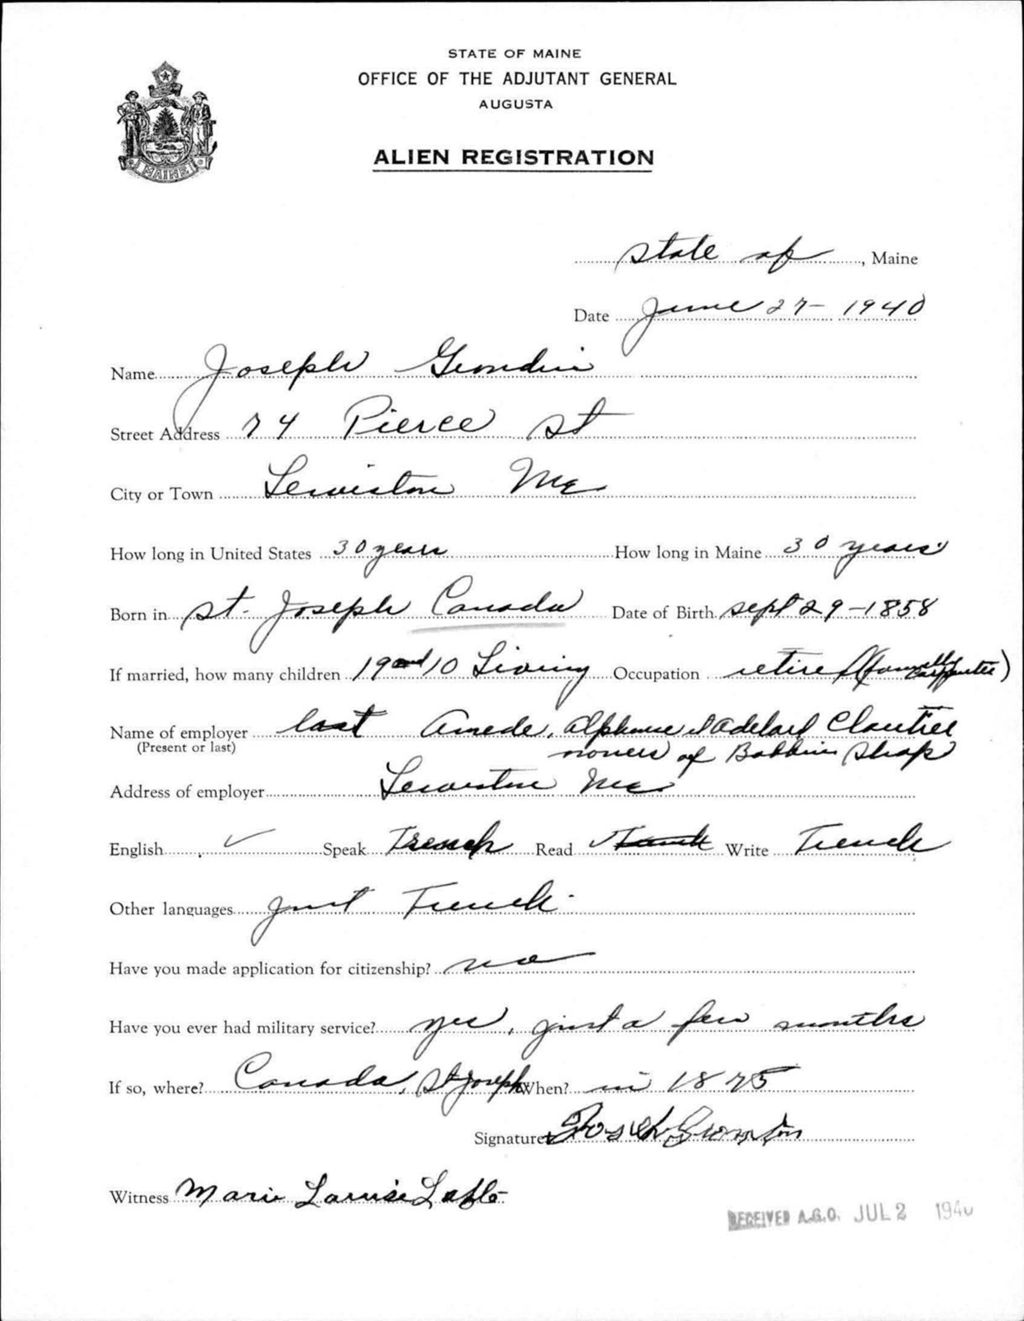 STATE OF MAINE
OFFICE OF THE ADJUTANT GENERAL
AUGUSTA
ALIEN REGISTRATION
State of, Maine
Date June 27- 1940
Name Joseph Grondin
Street Address 74 Pierce St
City or Town Lewiston Me
How long in United States 30 years How long in Maine 30 years
Born in St. Joseph Canada Date of Birth Sept 29-1858
If married, how many children 19 and 10 Living Occupation retire (formally carpenter)
Name of employer last Amede, Alphonse & Adelard Cloutier
(Present or last) owners of Bobbin Shop
Address of employer Lewiston Me
English ✓ Speak French Read French Write French
Other languages just French
Have you made application for citizenship? no
Have you ever had military service? yes, just a few months
If so, where? Canada, St Joseph When? in 1875
Signature Joseph Grondin
Witness Marie Louise
RECEIVED A.G.O. JUL 2 1940
MAINE